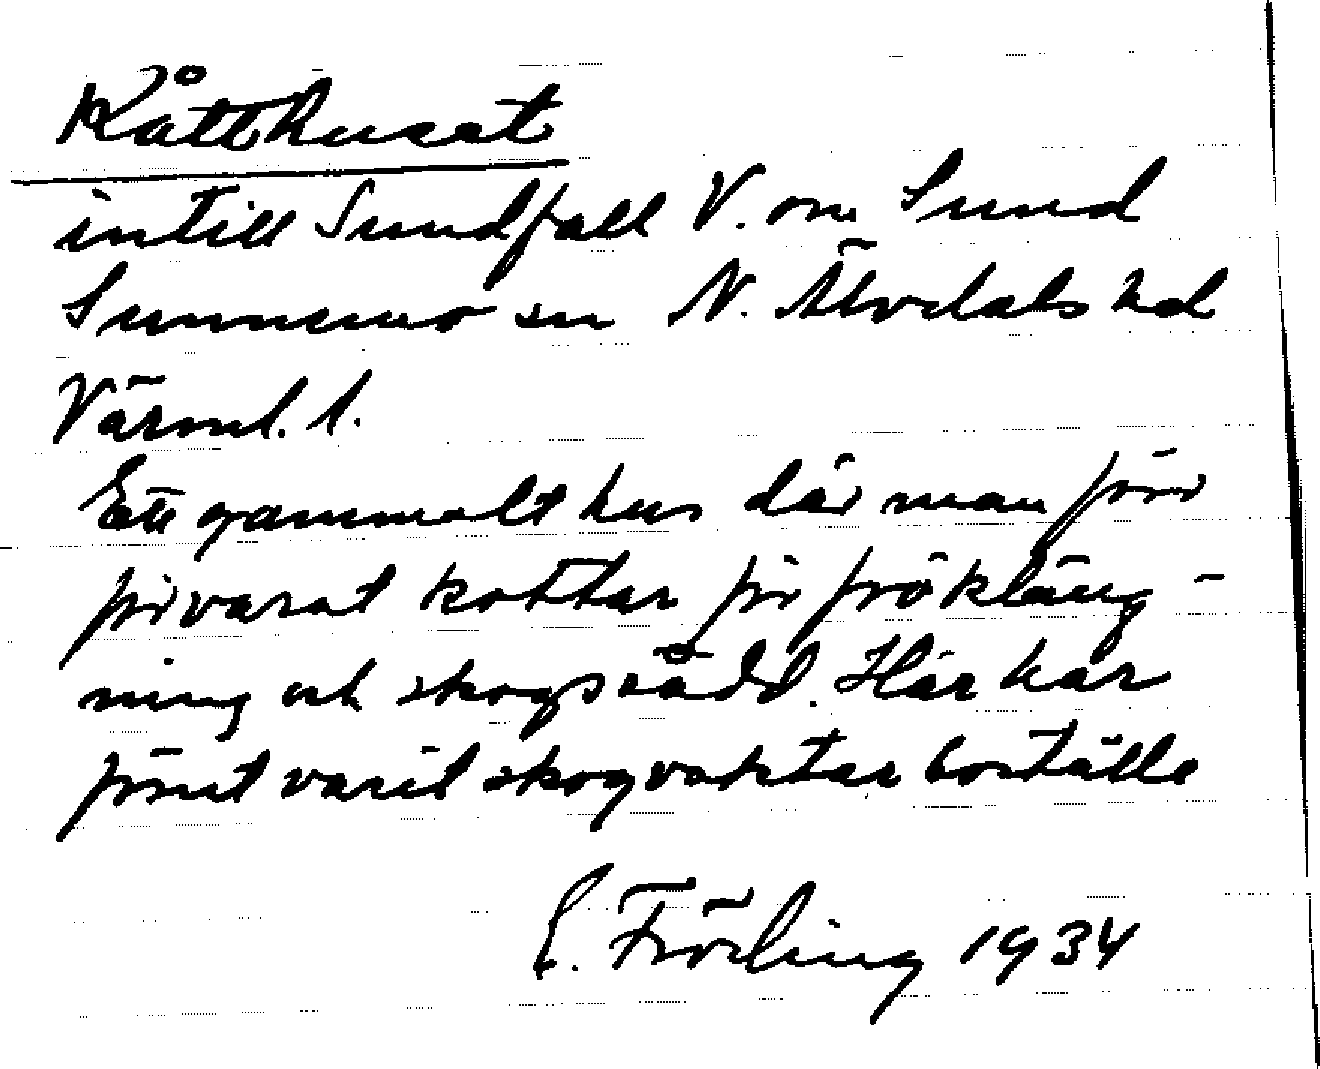 Kåtthuset
intill Sundfall V. om Sund
Sunnemo sn N. Älvdals hd
Värml. l.
Ett gammalt hus där man förr
förvarat kottar för frökläng-
ning och skogssådd. Här har
förut varit skogvaktarboställe
E. Fröling 1934